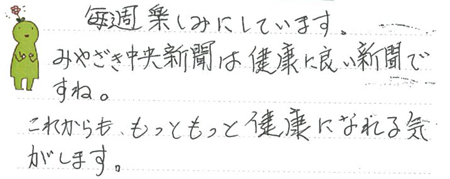 毎週楽しみにしています。
みやざき中央新聞は健康に良い新聞で
すね。
これからも、もっともっと健康になれる気
がします。